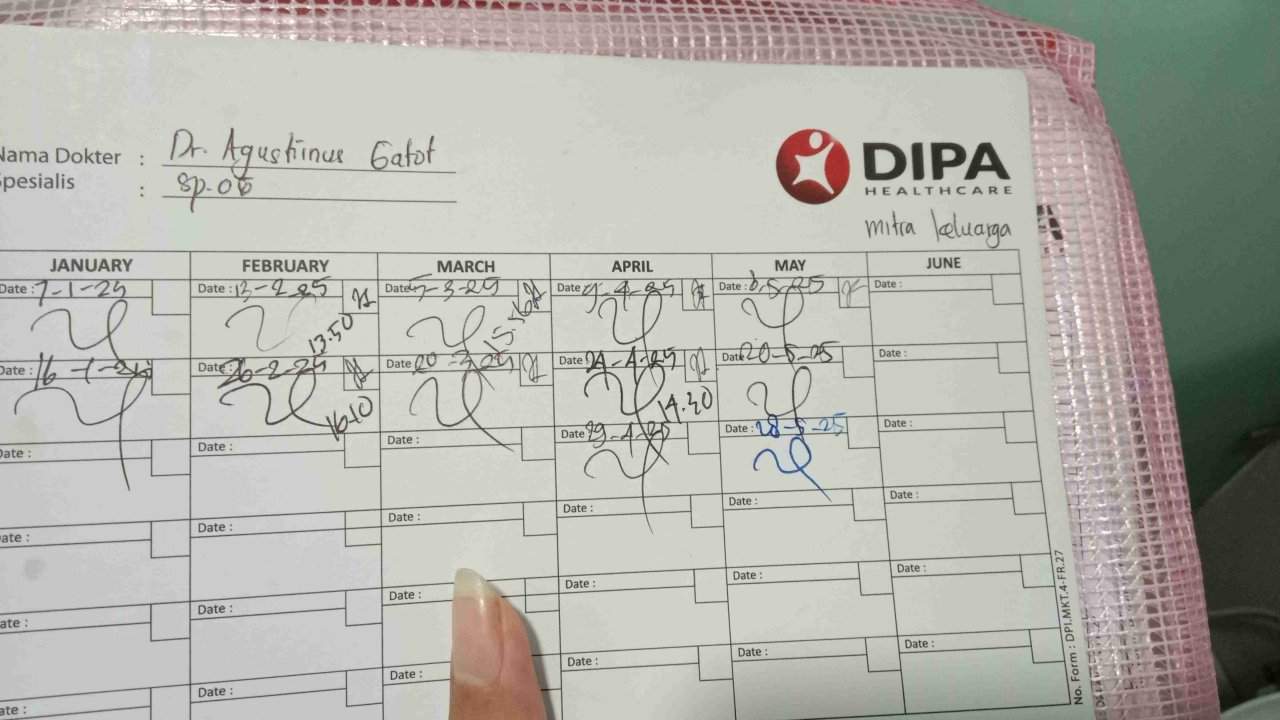 Nama Dokter : Dr. Agustinus Gatot
Spesialis : Sp.OG
DIPA
HEALTHCARE
mitra keluarga
JANUARY FEBRUARY MARCH APRIL MAY JUNE
Date : 7-1-25 Date : 13-2-25 Date : 5-3-25 Date : 9-4-25 Date : 8-5-25 Date :
13.50 15.16
Date : 16-1-25 Date : 26-2-25 Date : 20-3-25 Date : 24-4-25 Date : 20-5-25 Date :
16.10 14.30
Date : Date : Date : Date : 29-4-25 Date : 28-5-25 Date :
Date : Date : Date : Date : Date : Date :
Date : Date : Date : Date : Date : Date :
Date : Date : Date : Date : Date :
No. Form : DPI.MKT.4-FR.27